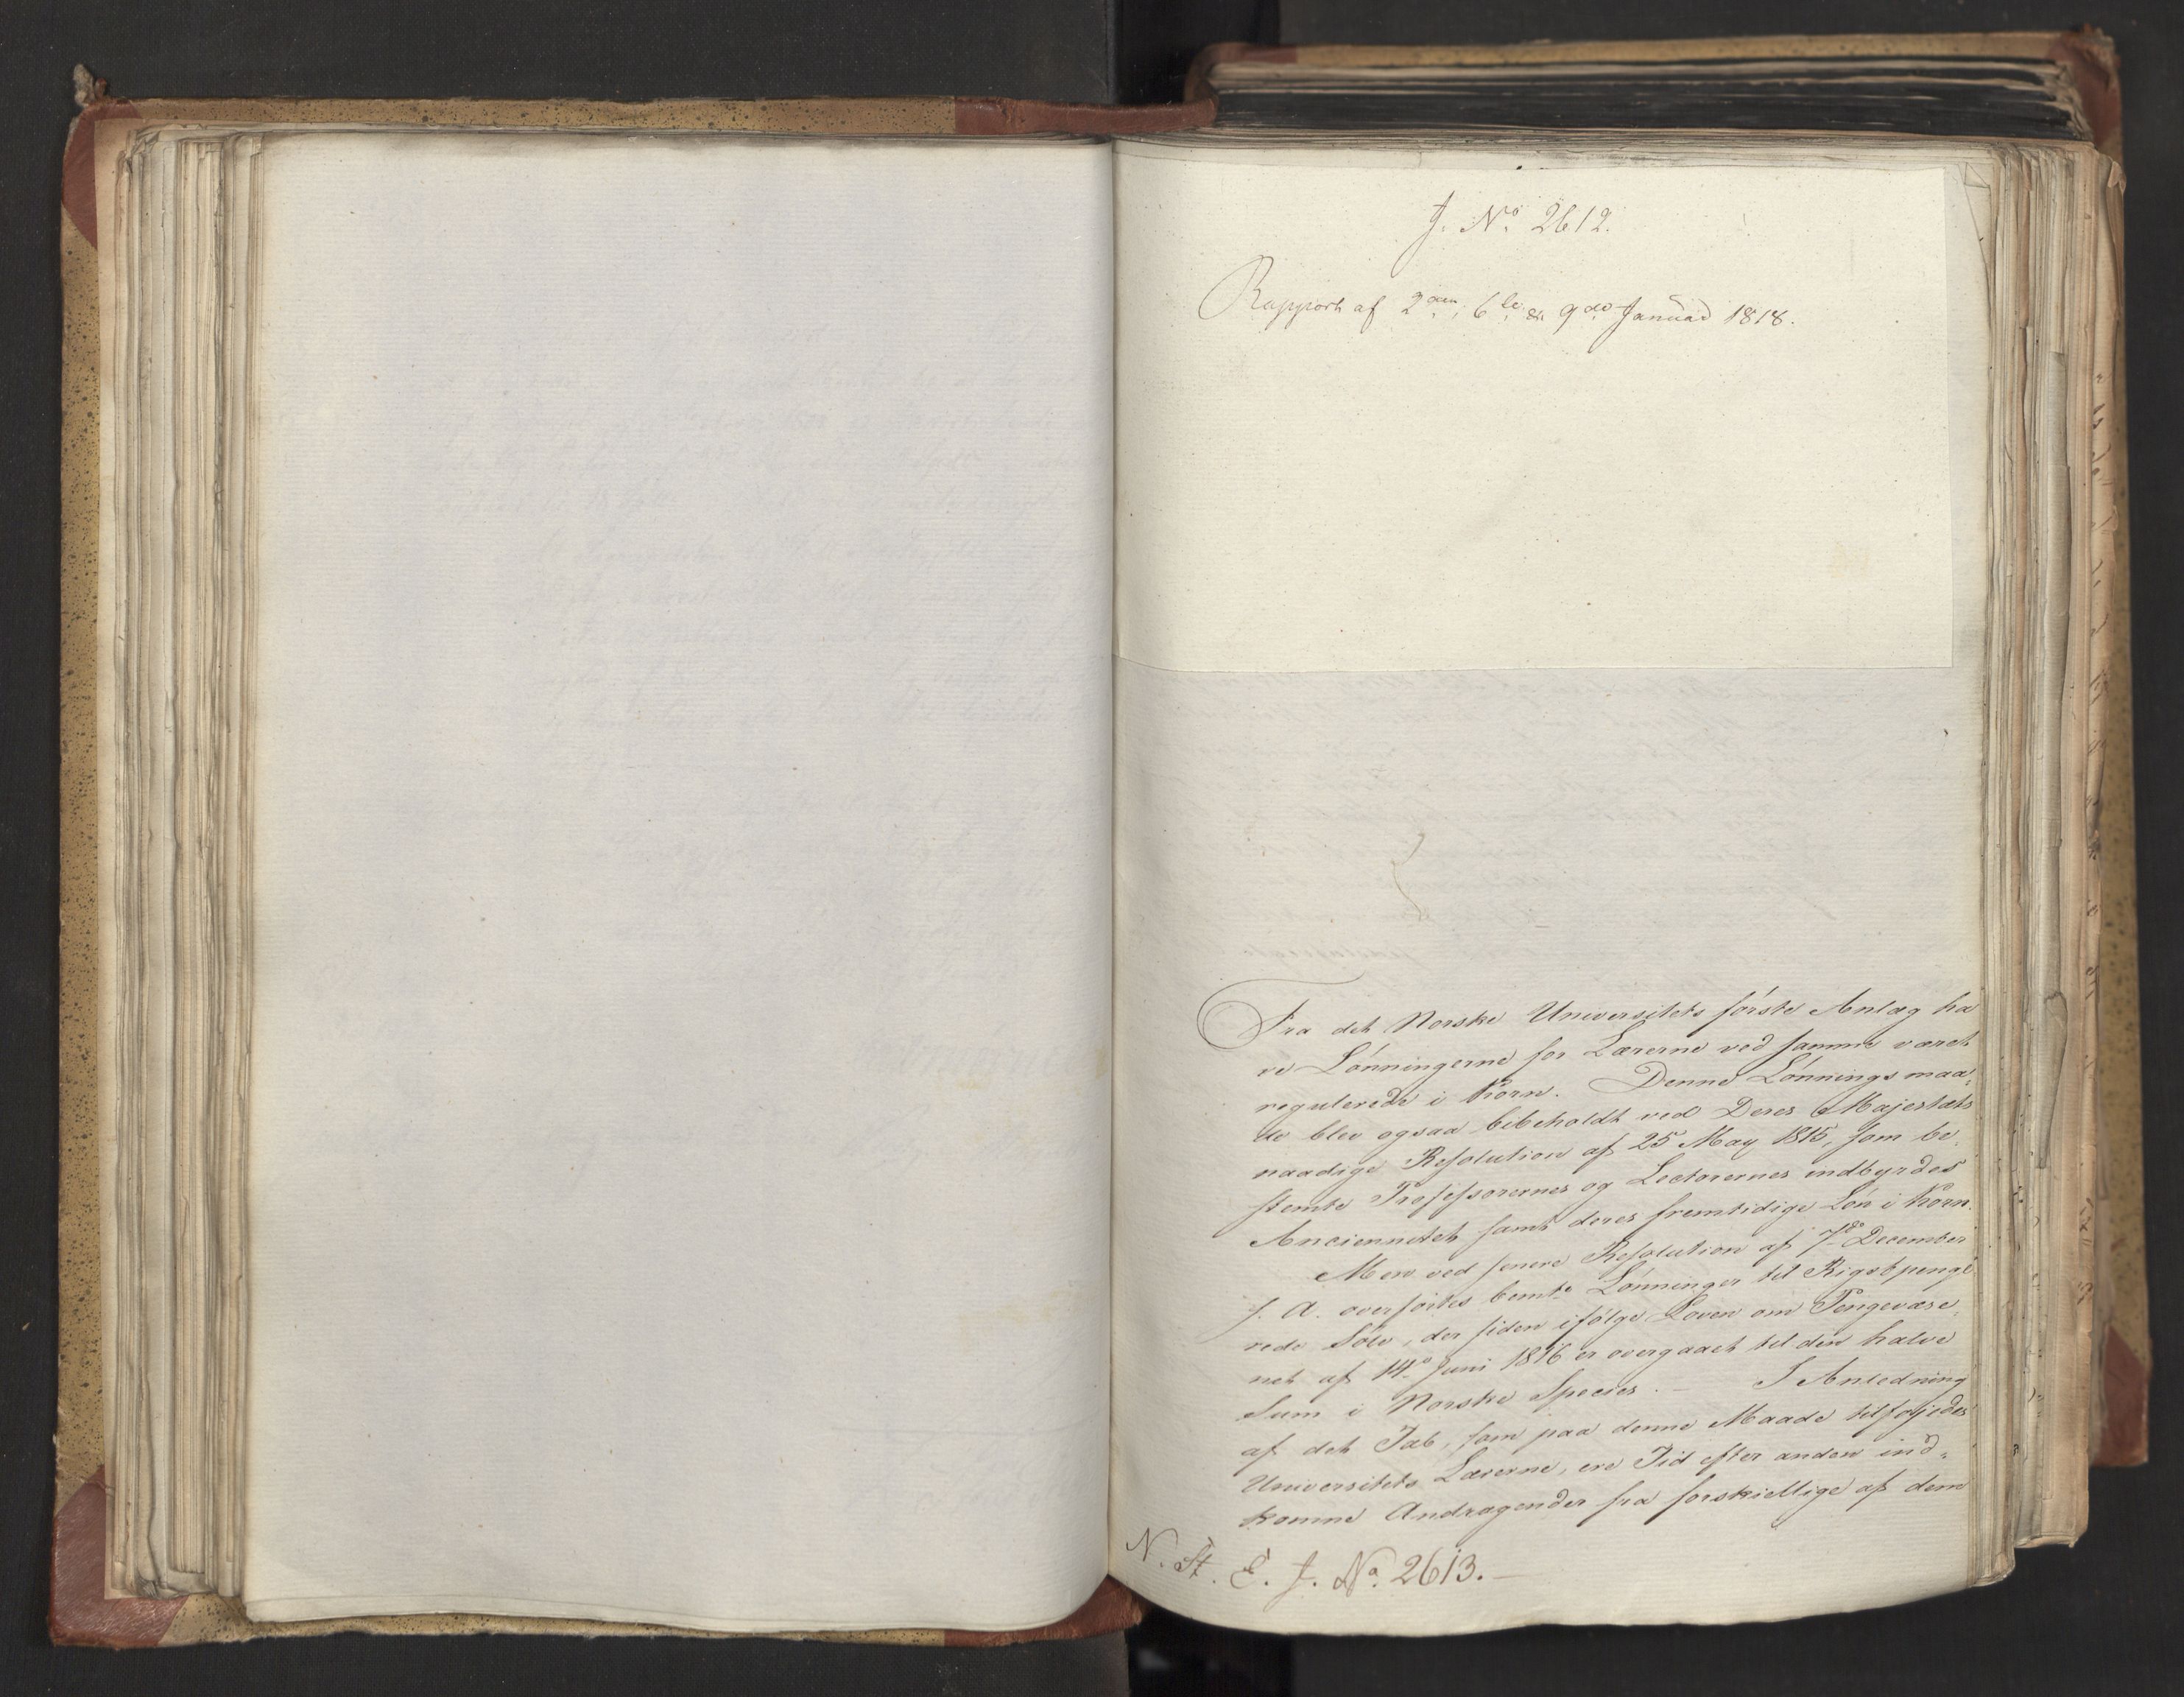 J. No 2612.
Rapport af 2den, 6te & 9de Januar 1818.
Fra det Norske Universitets første Anlæg ha
ve Lønningerne for Lærerne ved samme været
regulerede i Korn. Denne Lønningsmaa-
de blev ogsaa bibeholdt ved Deres Majestæts
naadige Resolution af 25 May 1815, som be-
stemte Professorernes og Lectorernes indbyrdes
Anciennetet samt deres fremtidige Løn i Korn.
Men ved senere Resolution af 7de December
s. A. overførtes bemte Lønninger til Rigsbpenge
rede Sølv, der siden ifølge Loven om Pengevæse-
net af 14de Juni 1816 er overgaaet til den halve
Sum i Norske Species. — I Anledning
af det Tab, som paa denne Maade tilføjedes
Universitets Lærerne, ere Tid efter anden ind-
komne Andragender fra forskiellige af dem
N. St. E. J. No. 2613. —